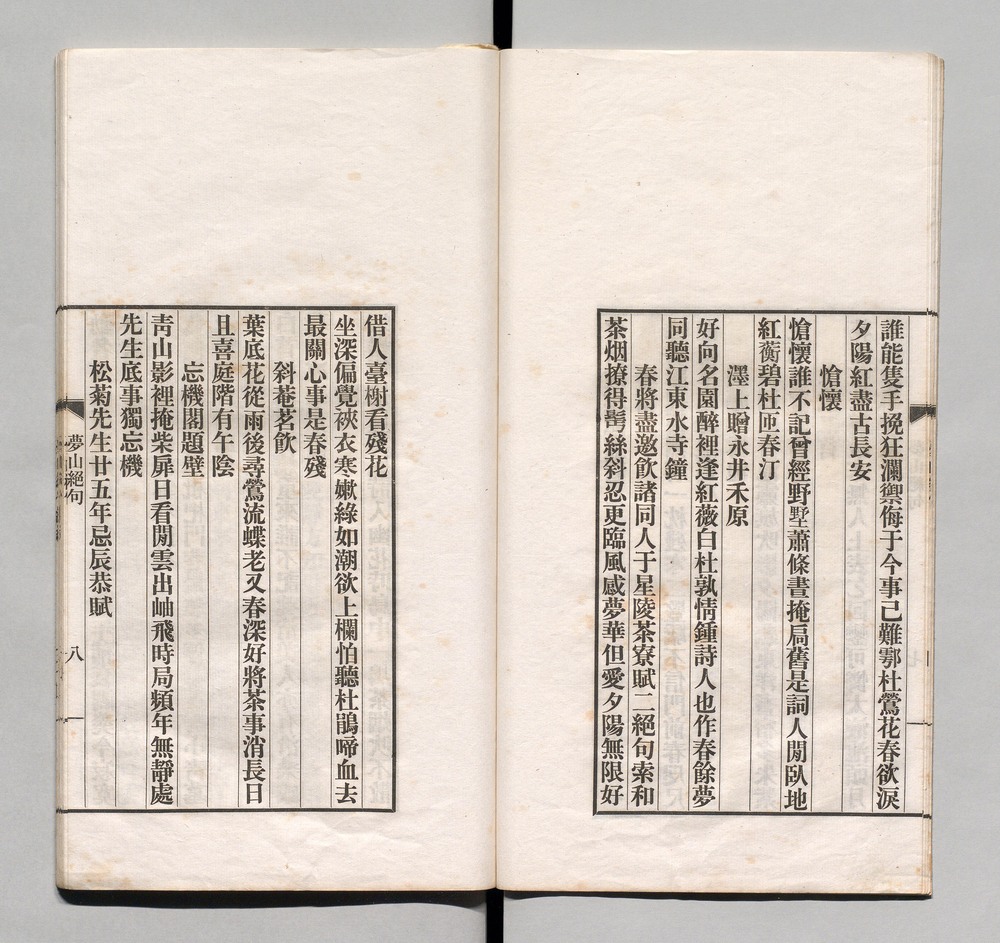 誰能隻手挽狂瀾禦侮于今事已難鄠杜鶯花春欲淚
夕陽紅盡古長安
愴懷
愴懷誰不記曾經野墅蕭條晝掩扃舊是詞人閒臥地
紅蘅碧杜匝春汀
濹上贈永井禾原
好向名園醉裡逢紅薇白杜孰情鍾詩人也作春餘夢
同聽江東水寺鐘
春將盡邀飲諸同人于星陵茶寮賦二絕句索和
茶烟撩得鬢絲斜忍更臨風感夢華但愛夕陽無限好
借人臺榭看殘花
坐深偏覺裌衣寒嫩綠如潮欲上欄怕聽杜鵑啼血去
最關心事是春殘
斜菴茗飲
葉底花從雨後尋鶯流蝶老又春深好將茶事消長日
且喜庭階有午陰
忘機閣題壁
靑山影裡掩柴扉日看閒雲出岫飛時局頻年無靜處
先生底事獨忘機
松菊先生廿五年忌辰恭賦
夢山絕句
八